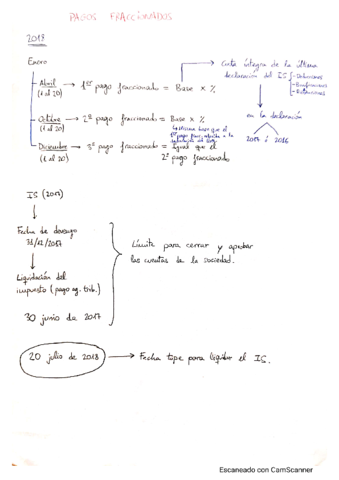 PAGOS FRACCIONADOS
2018
Enero
Abril (1 al 20) → 1er pago fraccionado = Base × %
→ Cuota íntegra de la última declaración del IS
- Deducciones
- Bonificaciones
- Retenciones
en la declaración
2017 ó 2016
Octubre (1 al 20) → 2º pago fraccionado = Base × %
la misma base que el
1er pago
Diciembre (1 al 20) → 3er pago fraccionado = Igual que el 2º pago fraccionado
IS (2017)
Fecha de devengo
31/12/2017
Liquidación del
impuesto (pago ag. trib.)
30 junio de 2017
Límite para cerrar y aprobar
las cuentas de la sociedad.
20 julio de 2018 → Fecha tope para liquidar el IS.
Escaneado con CamScanner